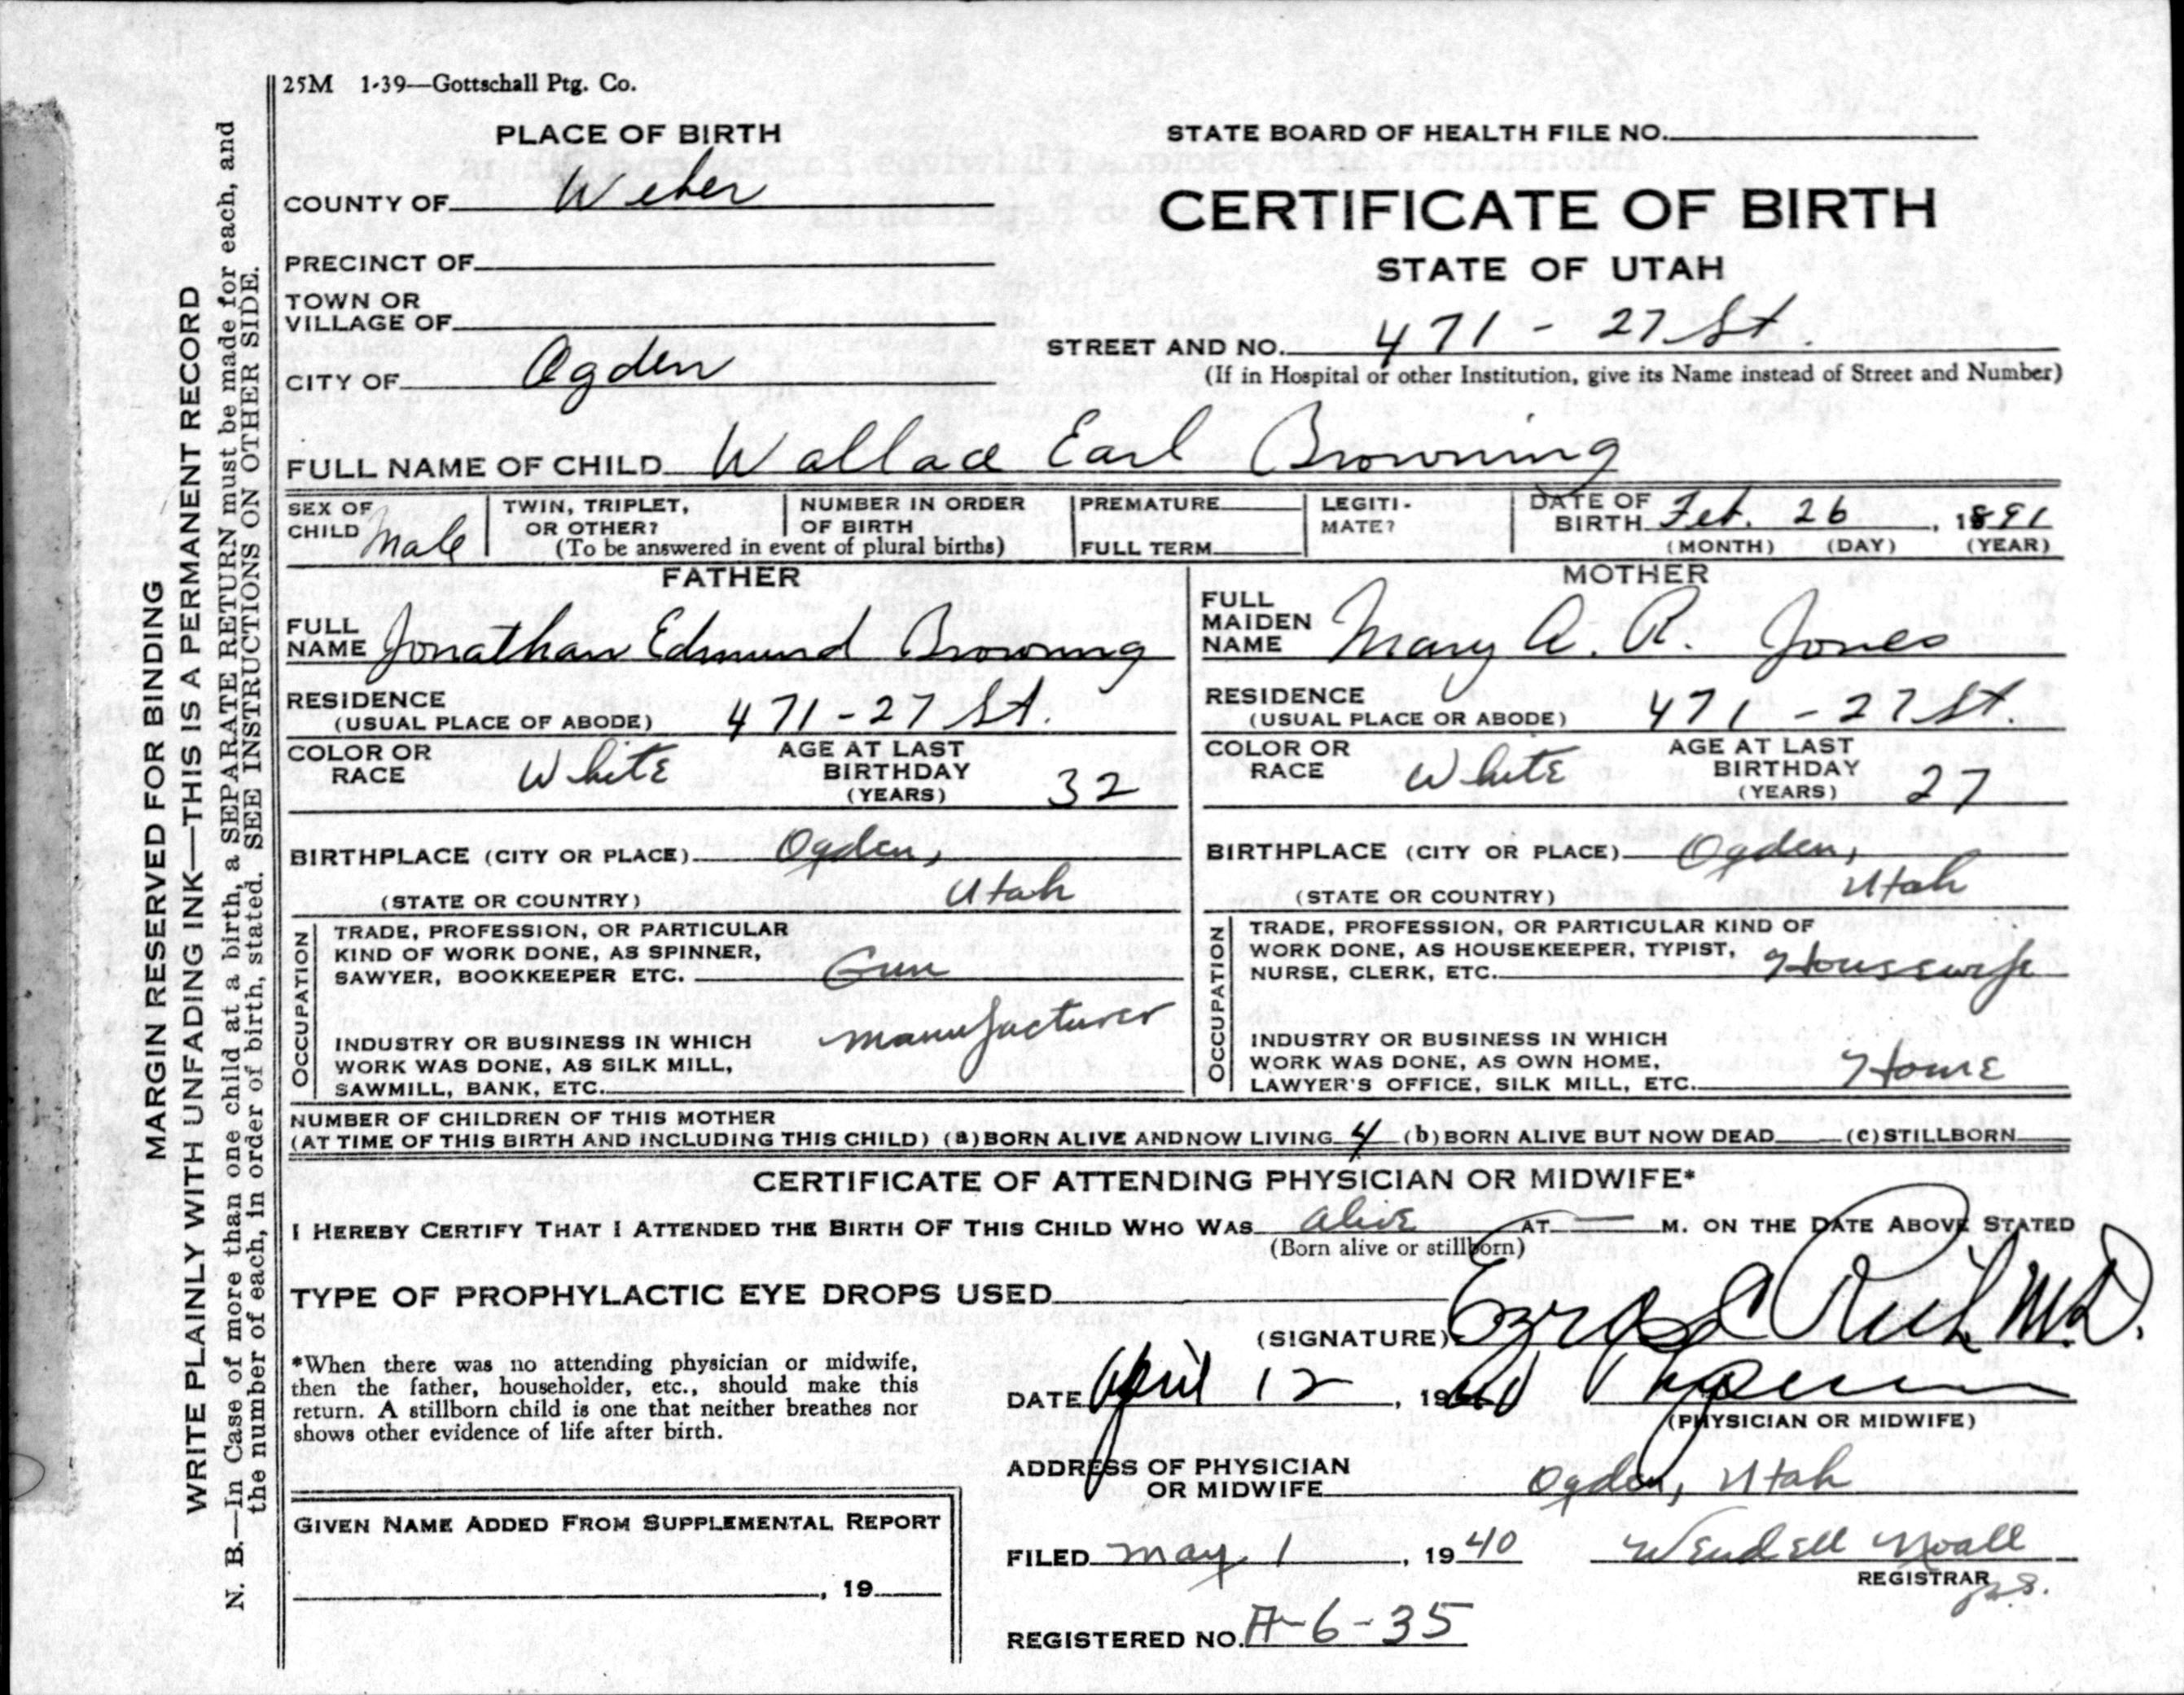 25M 1-39—Gottschall Ptg. Co.
PLACE OF BIRTH
STATE BOARD OF HEALTH FILE NO.
COUNTY OF Weber
CERTIFICATE OF BIRTH
PRECINCT OF
STATE OF UTAH
TOWN OR
VILLAGE OF
STREET AND NO. 471 - 27 St.
(If in Hospital or other Institution, give its Name instead of Street and Number)
CITY OF Ogden
FULL NAME OF CHILD Wallace Earl Browning
SEX OF CHILD Male
TWIN, TRIPLET, OR OTHER?
NUMBER IN ORDER OF BIRTH
(To be answered in event of plural births)
PREMATURE
FULL TERM
LEGITI-MATE?
DATE OF BIRTH Feb. 26, 1891
(MONTH) (DAY) (YEAR)
FATHER
FULL NAME Jonathan Edmund Browning
RESIDENCE
(USUAL PLACE OF ABODE) 471-27 St.
COLOR OR RACE White
AGE AT LAST BIRTHDAY (YEARS) 32
BIRTHPLACE (CITY OR PLACE) Ogden,
(STATE OR COUNTRY) Utah
OCCUPATION
TRADE, PROFESSION, OR PARTICULAR
KIND OF WORK DONE, AS SPINNER,
SAWYER, BOOKKEEPER ETC. Gun
manufacturer
INDUSTRY OR BUSINESS IN WHICH
WORK WAS DONE, AS SILK MILL,
SAWMILL, BANK, ETC.
MOTHER
FULL MAIDEN NAME Mary A. R. Jones
RESIDENCE
(USUAL PLACE OR ABODE) 471 - 27 St.
COLOR OR RACE White
AGE AT LAST BIRTHDAY (YEARS) 27
BIRTHPLACE (CITY OR PLACE) Ogden,
(STATE OR COUNTRY) Utah
OCCUPATION
TRADE, PROFESSION, OR PARTICULAR KIND OF
WORK DONE, AS HOUSEKEEPER, TYPIST,
NURSE, CLERK, ETC. Housewife
INDUSTRY OR BUSINESS IN WHICH
WORK WAS DONE, AS OWN HOME,
LAWYER'S OFFICE, SILK MILL, ETC. Home
NUMBER OF CHILDREN OF THIS MOTHER
(AT TIME OF THIS BIRTH AND INCLUDING THIS CHILD) (a) BORN ALIVE AND NOW LIVING 4 (b) BORN ALIVE BUT NOW DEAD (c) STILLBORN
CERTIFICATE OF ATTENDING PHYSICIAN OR MIDWIFE*
I HEREBY CERTIFY THAT I ATTENDED THE BIRTH OF THIS CHILD WHO WAS alive AT — M. ON THE DATE ABOVE STATED
(Born alive or stillborn)
TYPE OF PROPHYLACTIC EYE DROPS USED
(SIGNATURE) Ezra C Rich M.D.
*When there was no attending physician or midwife,
then the father, householder, etc., should make this
return. A stillborn child is one that neither breathes nor
shows other evidence of life after birth.
DATE April 12, 1940
(PHYSICIAN OR MIDWIFE)
ADDRESS OF PHYSICIAN
OR MIDWIFE Ogden, Utah
GIVEN NAME ADDED FROM SUPPLEMENTAL REPORT
, 19
FILED May 1, 1940 Wendell Noall
REGISTRAR
REGISTERED NO. A-6-35
MARGIN RESERVED FOR BINDING
WRITE PLAINLY WITH UNFADING INK—THIS IS A PERMANENT RECORD
N. B.—In Case of more than one child at a birth, a SEPARATE RETURN must be made for each, and
the number of each, in order of birth, stated. SEE INSTRUCTIONS ON OTHER SIDE.